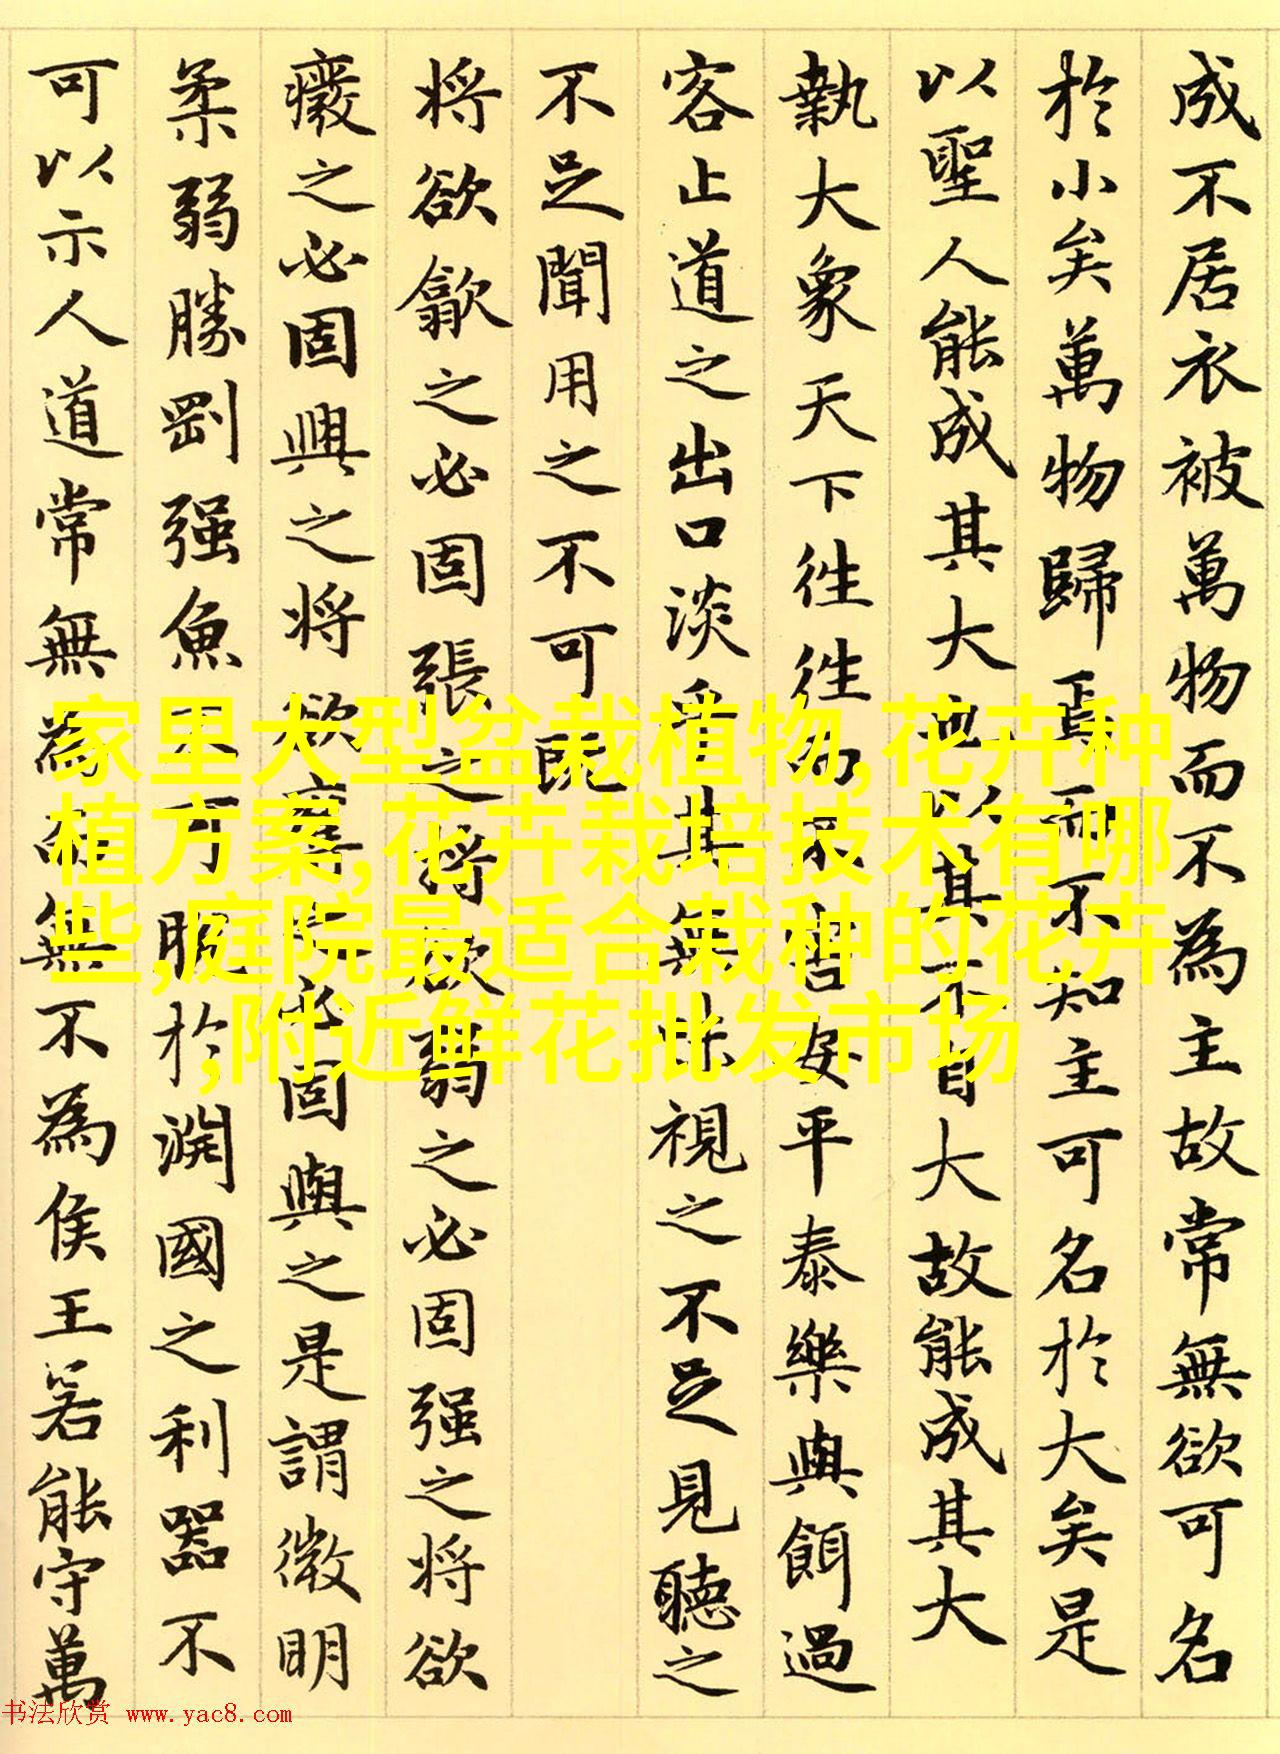 成不居衣被萬物而不為主故常無欲可名
於小矣萬物歸焉而不知主可名於大矣是
以聖人能成其大也以其不自大故能成其大
執大象天下徃徃而不害安平泰樂與餌過
客止道之出口淡乎其無味視之不足見聽之
不足聞用之不可既
将欲歙之必固張之将欲弱之必固强之将欲
癈之必固興之将欲奪之必固與之是謂微明
柔弱勝剛强魚不可脱於淵國之利器不
可以示人道常無為而無不為侯王若能守萬
家里大型盆栽植物,花卉种
植方案,花卉栽培技术有哪
些,庭院最适合栽种的花卉
,附近鲜花批发市场
书法欣赏 www.yac8.com